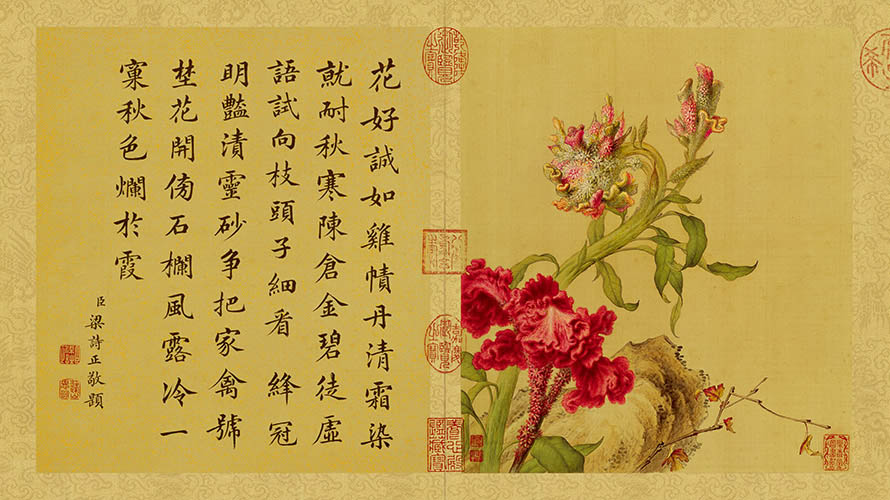 花好誠如雞幘丹清霜染
就耐秋寒陳倉金碧徒虛
語試向枝頭子細看 絳冠
明豔漬靈砂爭把家禽號
埜花開傍石欄風露冷一
窠秋色爛於霞
臣梁詩正敬題
乾隆御覽之寶
嘉慶御覽之寶